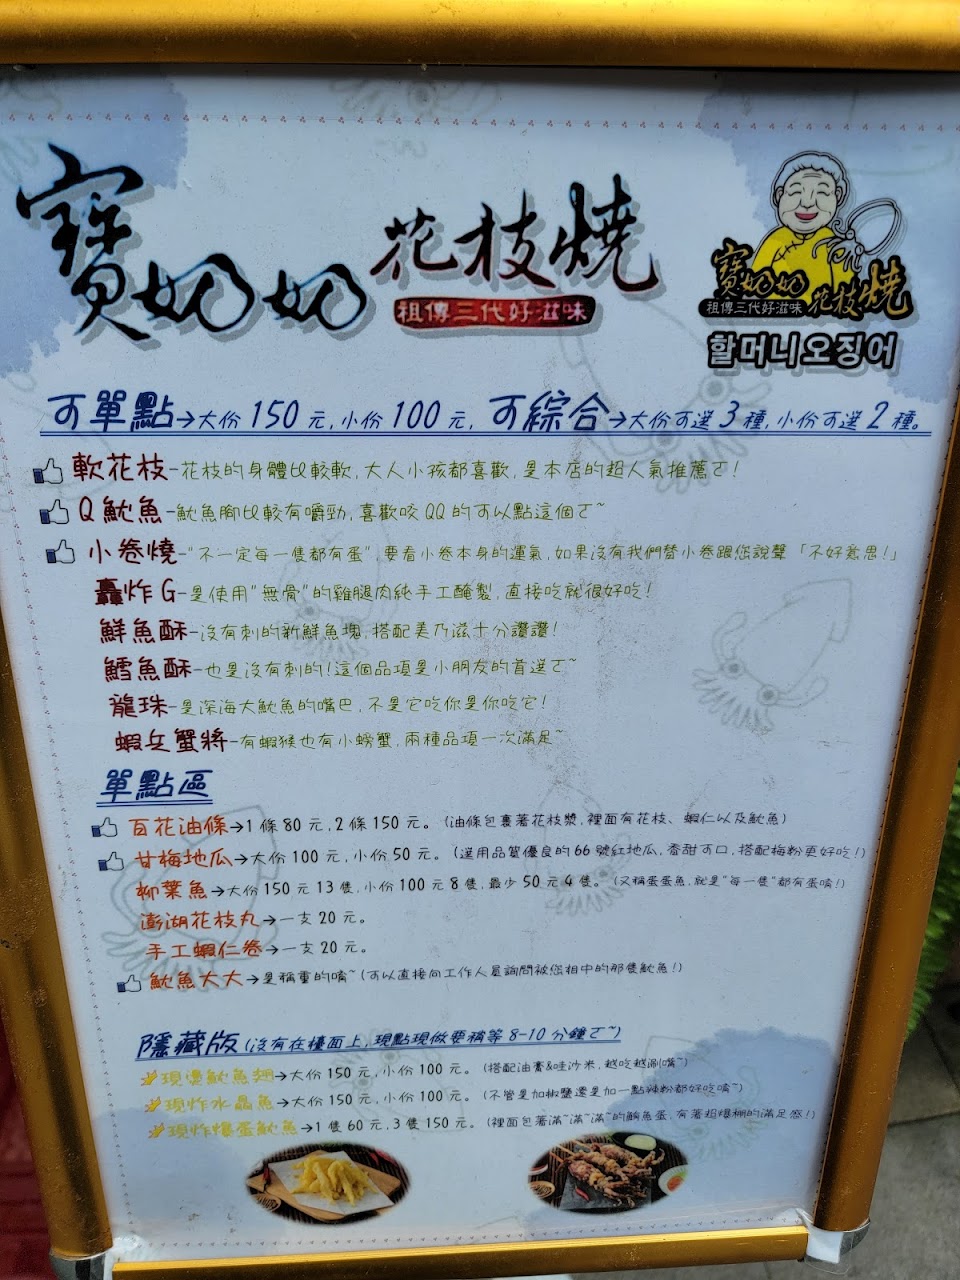 寶奶奶 花枝燒
祖傳三代好滋味
寶奶奶
祖傳三代好滋味 花枝燒
할머니오징어
可單點→大份 150 元, 小份 100 元, 可綜合→大份可選 3 種, 小份可選 2 種。
軟花枝-花枝的身體比較軟, 大人小孩都喜歡, 是本店的超人氣推薦ㄛ!
Q 魷魚-魷魚腳比較有嚼勁, 喜歡咬 QQ 的可以點這個ㄛ~
小卷燒-"不一定每一隻都有蛋", 要看小卷本身的運氣, 如果沒有我們替小卷跟您說聲「不好意思!」
轟炸 G-是使用"無骨"的雞腿肉純手工醃製, 直接吃就很好吃!
鮮魚酥-沒有刺的新鮮魚塊, 搭配美乃滋十分讚讚!
鱈魚酥-也是沒有刺的!這個品項是小朋友的首選ㄛ~
龍珠-是深海大魷魚的嘴巴, 不是它吃你是你吃它!
蝦兵蟹將-有蝦猴也有小螃蟹, 兩種品項一次滿足~
單點區
百花油條→1 條 80 元, 2 條 150 元。 (油條包裹著花枝漿, 裡面有花枝、蝦仁以及魷魚)
甘梅地瓜→大份 100 元, 小份 50 元。 (選用品質優良的 66 號紅地瓜, 香甜可口, 搭配梅粉更好吃!)
柳葉魚→大份 150 元 13 隻, 小份 100 元 8 隻, 最少 50 元 4 隻。 (又稱蛋蛋魚, 就是"每一隻"都有蛋唷!)
澎湖花枝丸→一支 20 元。
手工蝦仁卷→一支 20 元。
魷魚大大→是稱重的唷~(可以直接向工作人員詢問被您相中的那隻魷魚!)
隱藏版(沒有在檯面上, 現點現做要稍等 8-10 分鐘ㄛ~)
現燙魷魚翅→大份 150 元, 小份 100 元。 (搭配油膏&哇沙米, 越吃越涮嘴~)
現炸水晶魚→大份 150 元, 小份 100 元。 (不管是加椒鹽還是加一點辣粉都好吃唷~)
現炸爆蛋魷魚→1 隻 60 元, 3 隻 150 元。 (裡面包著滿~滿~滿~的鮪魚蛋, 有著超爆棚的滿足感!)